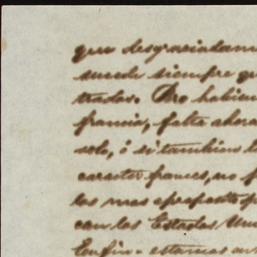 que desgraciadam
sucede siempre qu
trados. No habien
francia, falta ahora
solo, ó si tambien l
caracter frances, no p
las mas
con los Estados Uni
Enfin - estamos